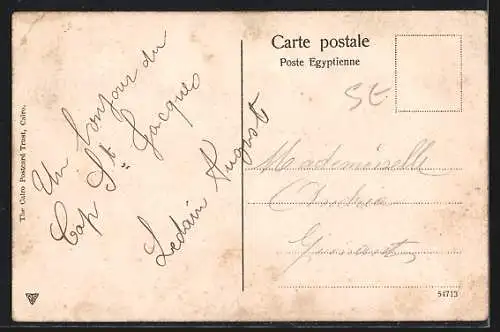 Carte postale
Poste Egyptienne
The Cairo Postcard Trust, Cairo.
Un bonjour du
Cap St Jacques
Ledain August
SE
Mademoiselle
54713